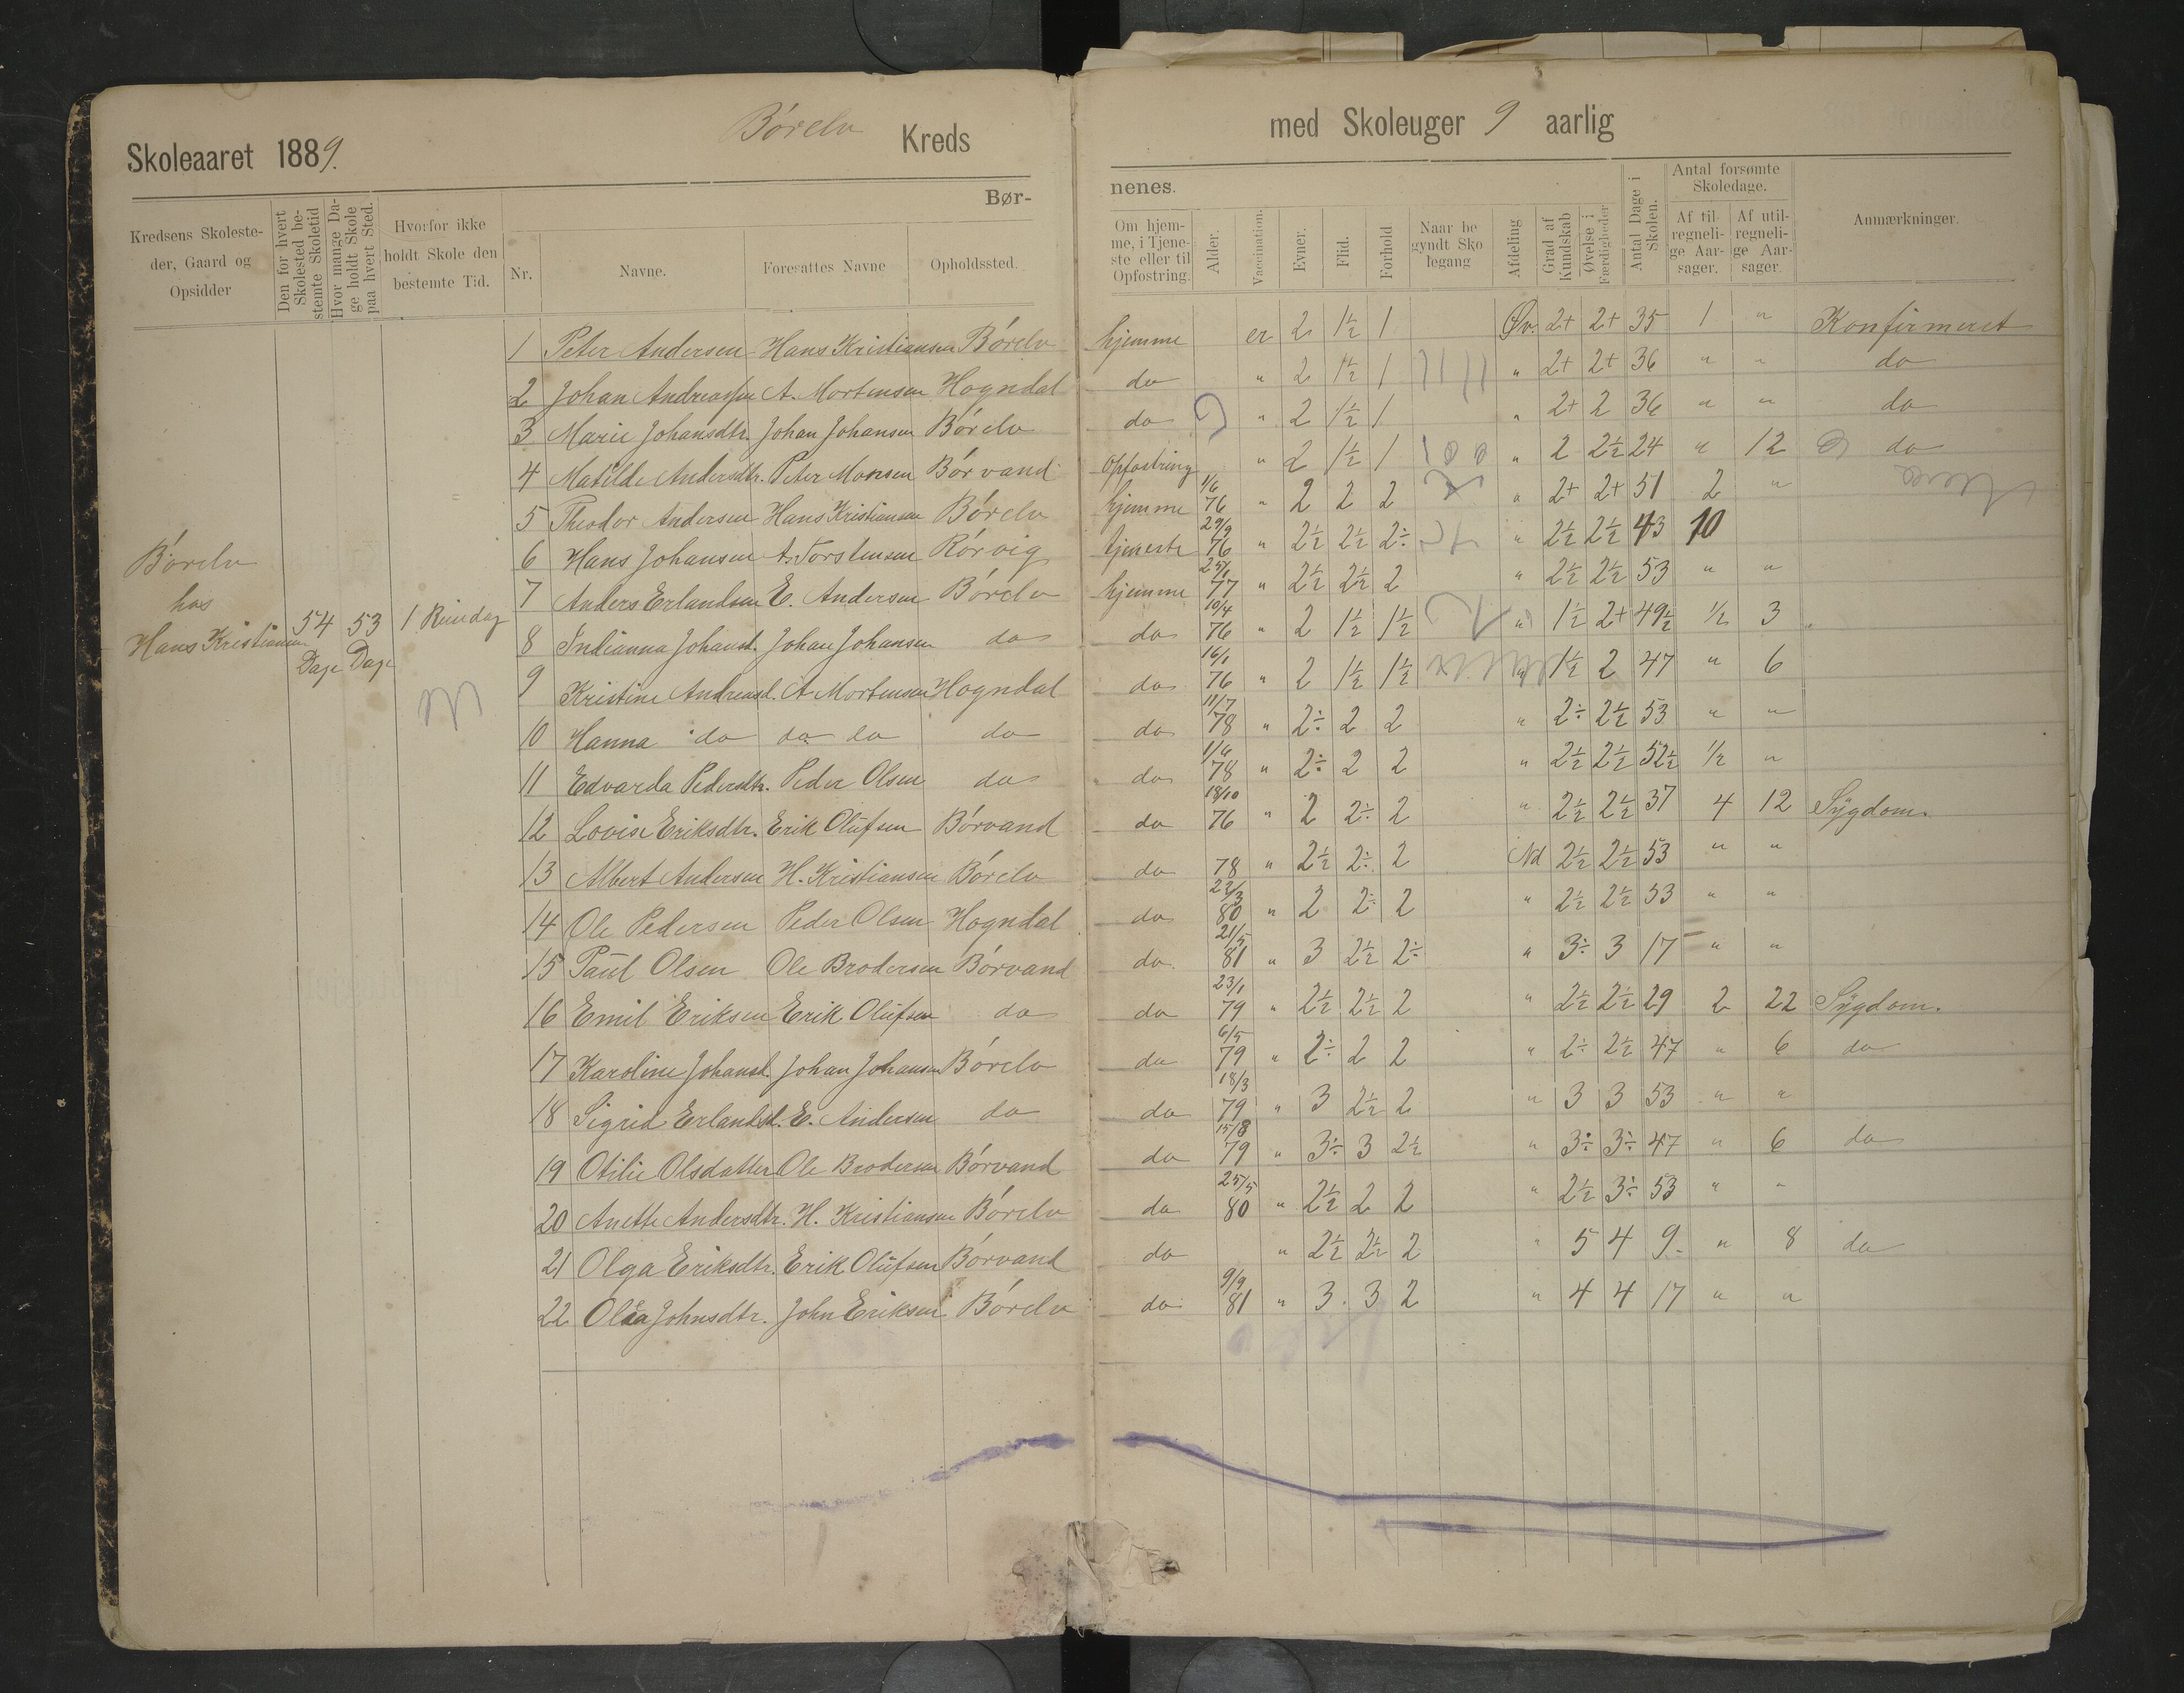 Skoleaaret 1889.
Børelv Kreds
med Skoleuger 9 aarlig
Kredsens Skolesteder, Gaard og Opsidder
Den for hvert Skolested bestemte Skoletid
Hvor mange Dage holdt Skole paa hvert Sted.
Hvorfor ikke holdt Skole den bestemte Tid.
Bør-
nenes.
Nr. Navne. Foresattes Navne Opholdssted.
Om hjemme, i Tjeneste eller til Opfostring.
Alder. Vaccination. Evner. Flid. Forhold
Naar begyndt Skolegang
Afdeling
Grad af Kundskab
Øvelse i Færdigheder
Antal Dage i Skolen.
Antal forsømte Skoledage.
Af tilregnelige Aarsager.
Af utilregnelige Aarsager.
Anmærkninger.
Børelv
hos
Hans Kristiansen
54 Dage
53 Dage
1 Reisedag
1 Peter Andersen Hans Kristiansen Børelv hjemme er 2 1½ 1 Øv. 2+ 2+ 35 1 " Konfirmeret
2 Johan Andreassen A. Mortensen Hogndal do " 2 1½ 1 " 2+ 2+ 36 " " do
3 Marie Johansdtr. Johan Johansen Børelv do " 2 1½ 1 " 2+ 2 36 " " do
4 Matilde Andersdtr. Peter Monsen Børvand Opfostring " 2 1½ 1 " 2 2½ 24 " 12 do
5 Theodor Andersen Hans Kristiansen Børelv hjemme 1/6 76 " 2 2 2 " 2+ 2+ 51 2 "
6 Hans Johansen A. Torstensen Rørvig tjeneste 29/9 76 " 2½ 2½ 2÷ " 2½ 2½ 43 10
7 Anders Erlandsen E. Andersen Børelv hjemme 25/1 77 " 2½ 2½ 2 " 2½ 2½ 53 " "
8 Indianna Johansd. Johan Johansen do do 10/4 76 " 2 1½ 1½ " 1½ 2+ 49½ ½ 3
9 Kristine Andreasd. A. Mortensen Hogndal do 16/1 76 " 2 1½ 1½ " 1½ 2 47 " 6
10 Hanna do do do do do 11/7 78 " 2÷ 2 2 " 2÷ 2½ 53 " "
11 Edvarda Pedersdtr. Peder Olsen do do 1/6 78 " 2÷ 2 2 " 2½ 2½ 52½ ½ "
12 Lovise Eriksdtr. Erik Olufsen Børvand do 18/10 76 " 2 2÷ 2 " 2½ 2½ 37 4 12 Sygdom.
13 Albert Andersen H. Kristiansen Børelv do 78 " 2½ 2÷ 2 Nd 2½ 2½ 53 " "
14 Ole Pedersen Peder Olsen Hogndal do 22/3 80 " 2 2÷ 2 " 2½ 2½ 53 " "
15 Paul Olsen Ole Brodersen Børvand do 21/5 81 " 3 2½ 2÷ " 3÷ 3 17 " "
16 Emil Eriksen Erik Olufsen do do 23/1 79 " 2½ 2½ 2 " 2½ 2½ 29 2 22 Sygdom.
17 Karoline Johansd. Johan Johansen Børelv do 6/5 79 " 2÷ 2 2 " 2÷ 2½ 47 " 6 do
18 Sigrid Erlandsd. E. Andersen do do 18/3 79 " 3 2½ 2 " 3 3 53 " "
19 Otilie Olsdatter Ole Brodersen Børvand do 15/8 79 " 3÷ 3 2½ " 3÷ 3÷ 47 " 6 do
20 Anette Andersdtr. H. Kristiansen Børelv do 25/5 80 " 2½ 2 2 " 2½ 3÷ 53 " "
21 Olga Eriksdtr. Erik Olufsen Børvand do " 2½ 2½ 2 " 5 4 9 " 8 do
22 Olea Johnsdtr. John Eriksen Børelv do 9/9 81 " 3 3 2 " 4 4 17 " "